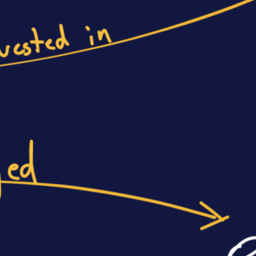 vested in
ged